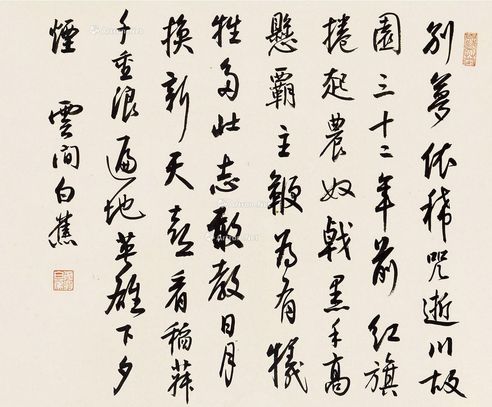 别梦依稀咒逝川故
园三十二年前红旗
捲起农奴戟黑手高
懸霸主鞭为有犧
牲多壮志敢教日月
换新天喜看稲菽
千重浪遍地英雄下夕
煙 雲间白蕉